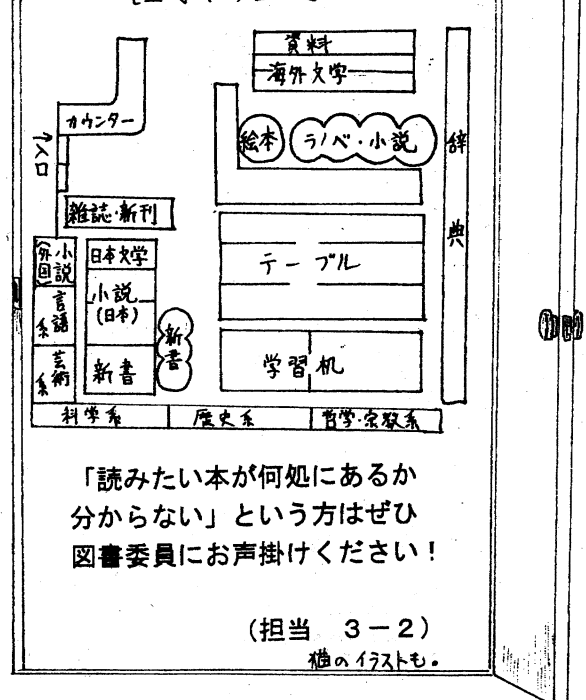 資料
海外文学
カウンター
絵本
ラノベ・小説
辞典
↑入口
雑誌・新刊
小説(外国)
日本文学
テーブル
言語系
小説
(日本)
新書
芸術系
新書
学習机
科学系
歴史系
哲学・宗教系
「読みたい本が何処にあるか
分からない」という方はぜひ
図書委員にお声掛けください！
(担当 3－2)
猫のイラストも。